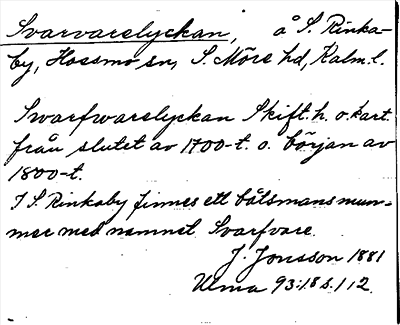 Svarvarelyckan, å S. Rinka-
by, Hossmo sn, S. Möre hd, Kalm. l.
Swarfwarelyckan Skift. h. o. kart.
från slutet av 1700-t. o. början av
1800-t.
I S. Rinkaby finnes ett båtsmansnum-
mer med namnet Svarfvare.
J. Jonsson 1881
Ulma 93:18 s. 112.